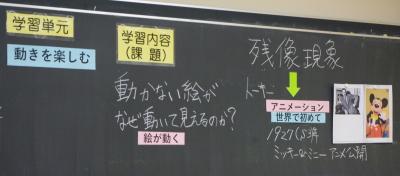 学習単元
動きを楽しむ
学習内容
(課題)
動かない絵が
なぜ動いて見えるのか?
絵が動く
残像現象
トーキー
アニメーション
世界で初めて
ミッキー&ミニー アニメ公開